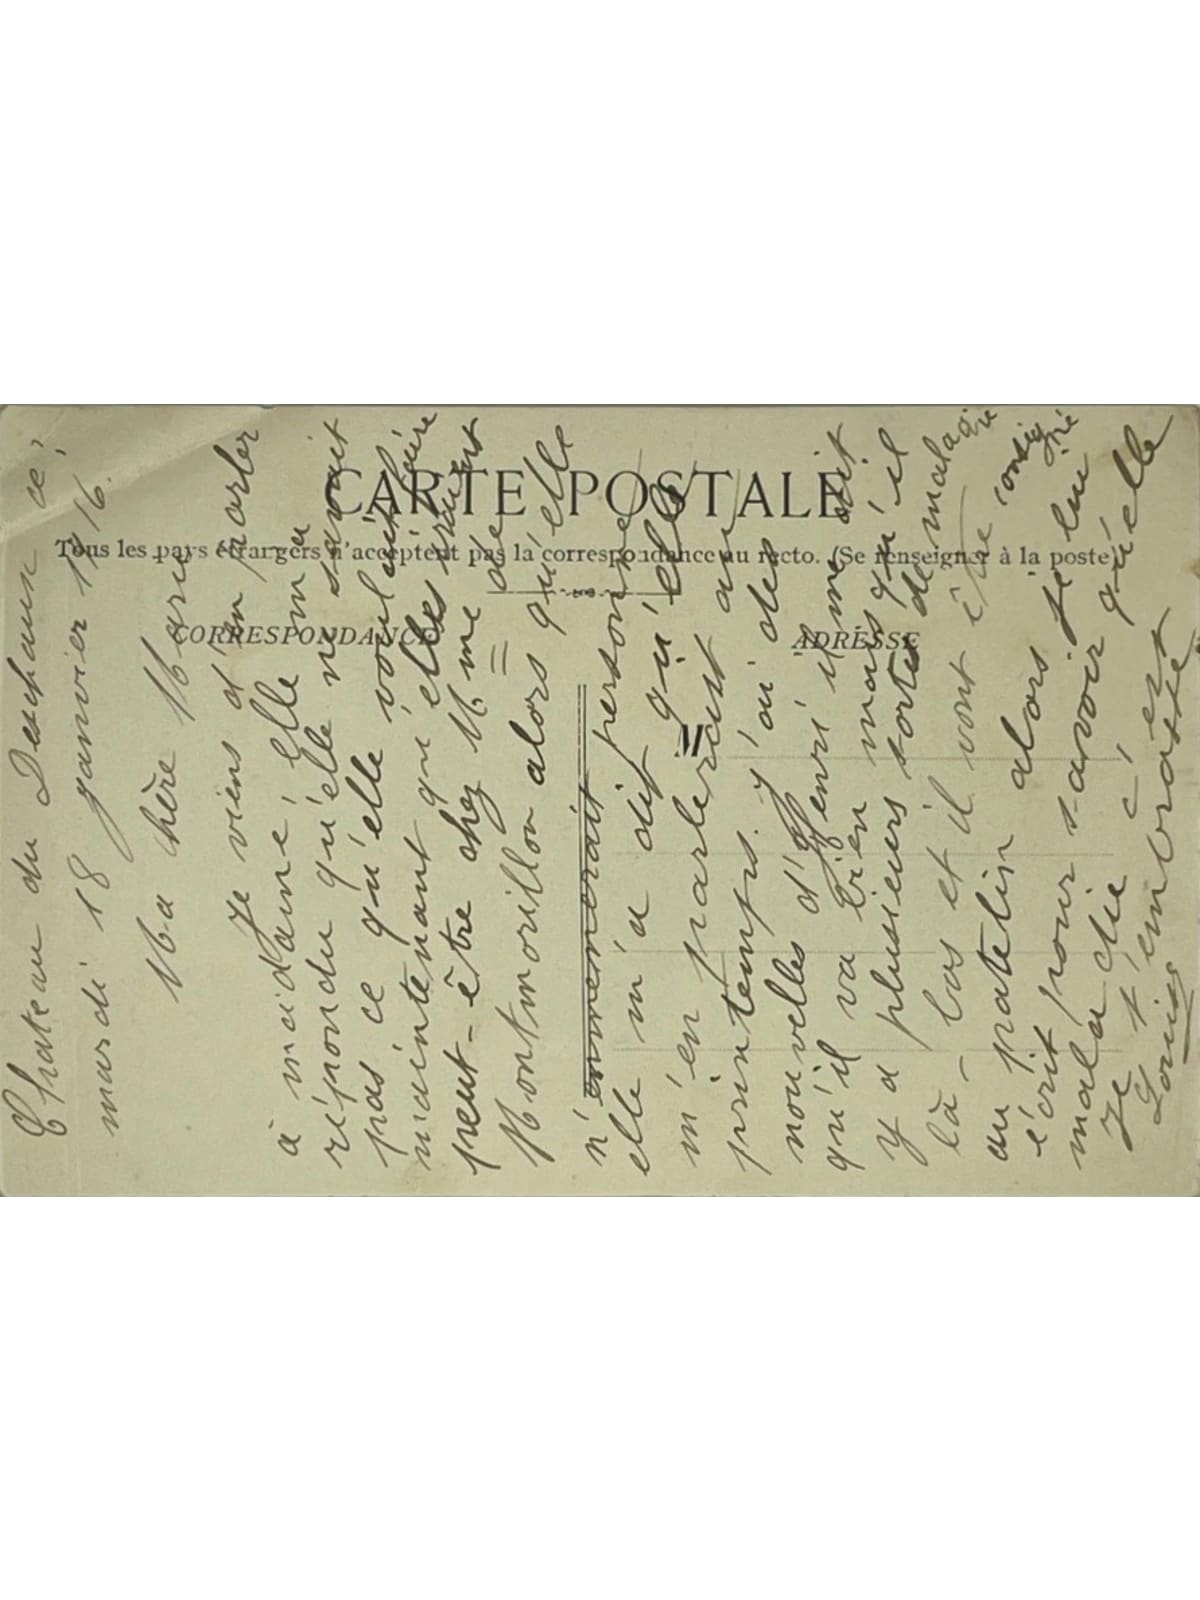 CARTE POSTALE
Tous les pays étrangers n'acceptent pas la correspondance au recto. (Se renseigner à la poste)
CORRESPONDANCE
ADRESSE
M
Chateau du Deschaux ce
mardi 18 janvier 1916.
Ma chère Marie
Je viens d'en parler
à madame, Elle m'a
répondu qu'elle ne savait
pas ce qu'elle voulait faire
maintenant qu'elles iraient
peut-être chez Mme de
Montmorillon alors qu'elle
n'emmenerait personne
elle m'a dit qu'elle
m'en parlerait au
printemps. J'ai des
nouvelles d'Henri il me dit
qu'il va bien mais qu'il
y a plusieurs sortes de maladie
là-bas et il vont être consigné
au patelin alors je lui
écrit pour savoir qu'elle
maladie c'est
Je t'embrasse
Louise